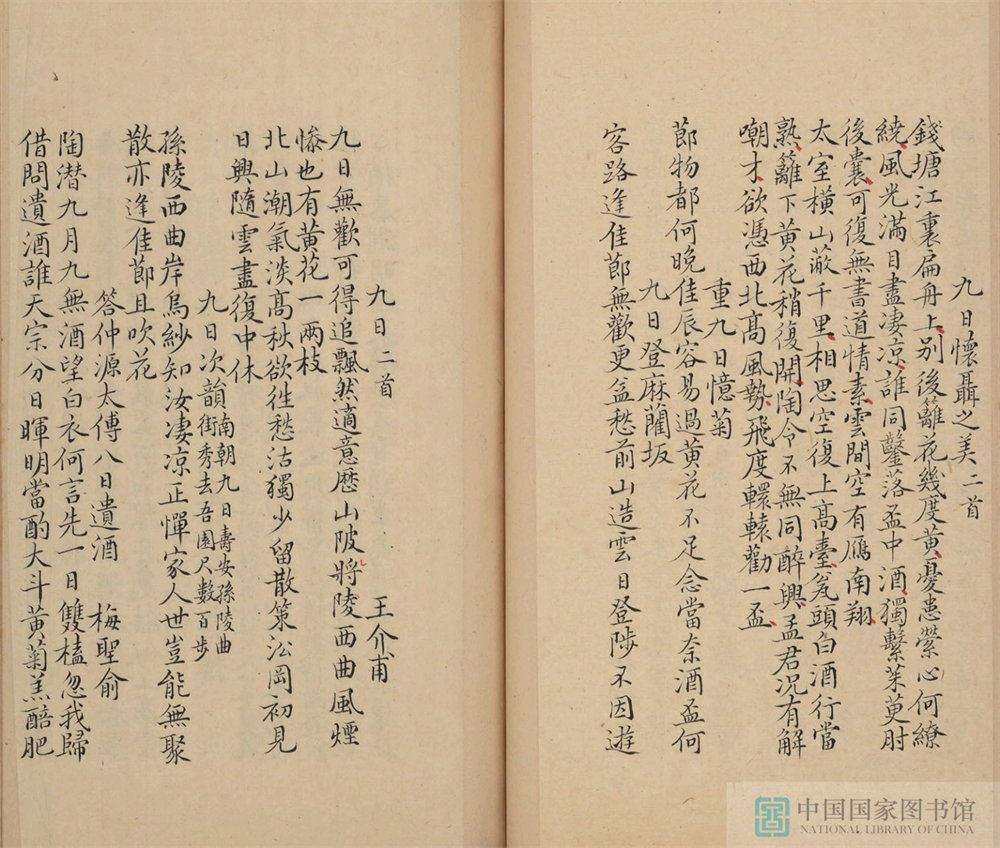 九日懷聶之美二首
錢塘江裏扁舟上别後籬花幾度黃憂患縈心何繚
繞風光滿目盡凄凉誰同鑿落盃中酒獨繫茱萸肘
後囊可復無書道情素雲間空有鴈南翔
太室橫山蔽千里相思空復上高臺瓮頭白酒行當
熟籬下黃花稍復開陶令不無同醉興孟君况有解
嘲才欲憑西北高風勢飛度轘轅勸一盃
重九日憶菊
節物都何晚佳辰容易過黃花不足念當奈酒盃何
九日登麻藺坂
客路逢佳節無歡更益愁前山造雲日登陟不因遊
九日二首
王介甫
九日無歡可得追飄然適意歷山陂將陵西曲風煙
慘也有黃花一兩枝
北山潮氣淡高秋欲徃愁沽獨少留散策㳂岡初見
日興隨雲盡復中休
九日次韻南朝九日壽安孫陵曲
街秀去吾園尺數百步
孫陵西曲岸烏紗知汝凄凉正憚家人世豈能無聚
散亦逢佳節且吹花
答仲源太傅八日遺酒
梅聖俞
陶潛九月九無酒望白衣何言先一日雙榼忽我歸
借問遺酒誰天宗分日暉明當酌大斗黃菊羔醅肥
中国国家图书馆
NATIONAL LIBRARY OF CHINA